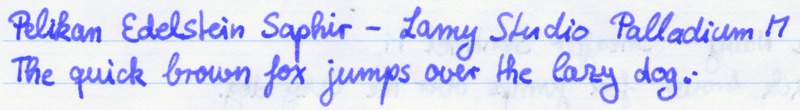 Pelikan Edelstein Saphir - Lamy Studio Palladium M
The quick brown fox jumps over the lazy dog.